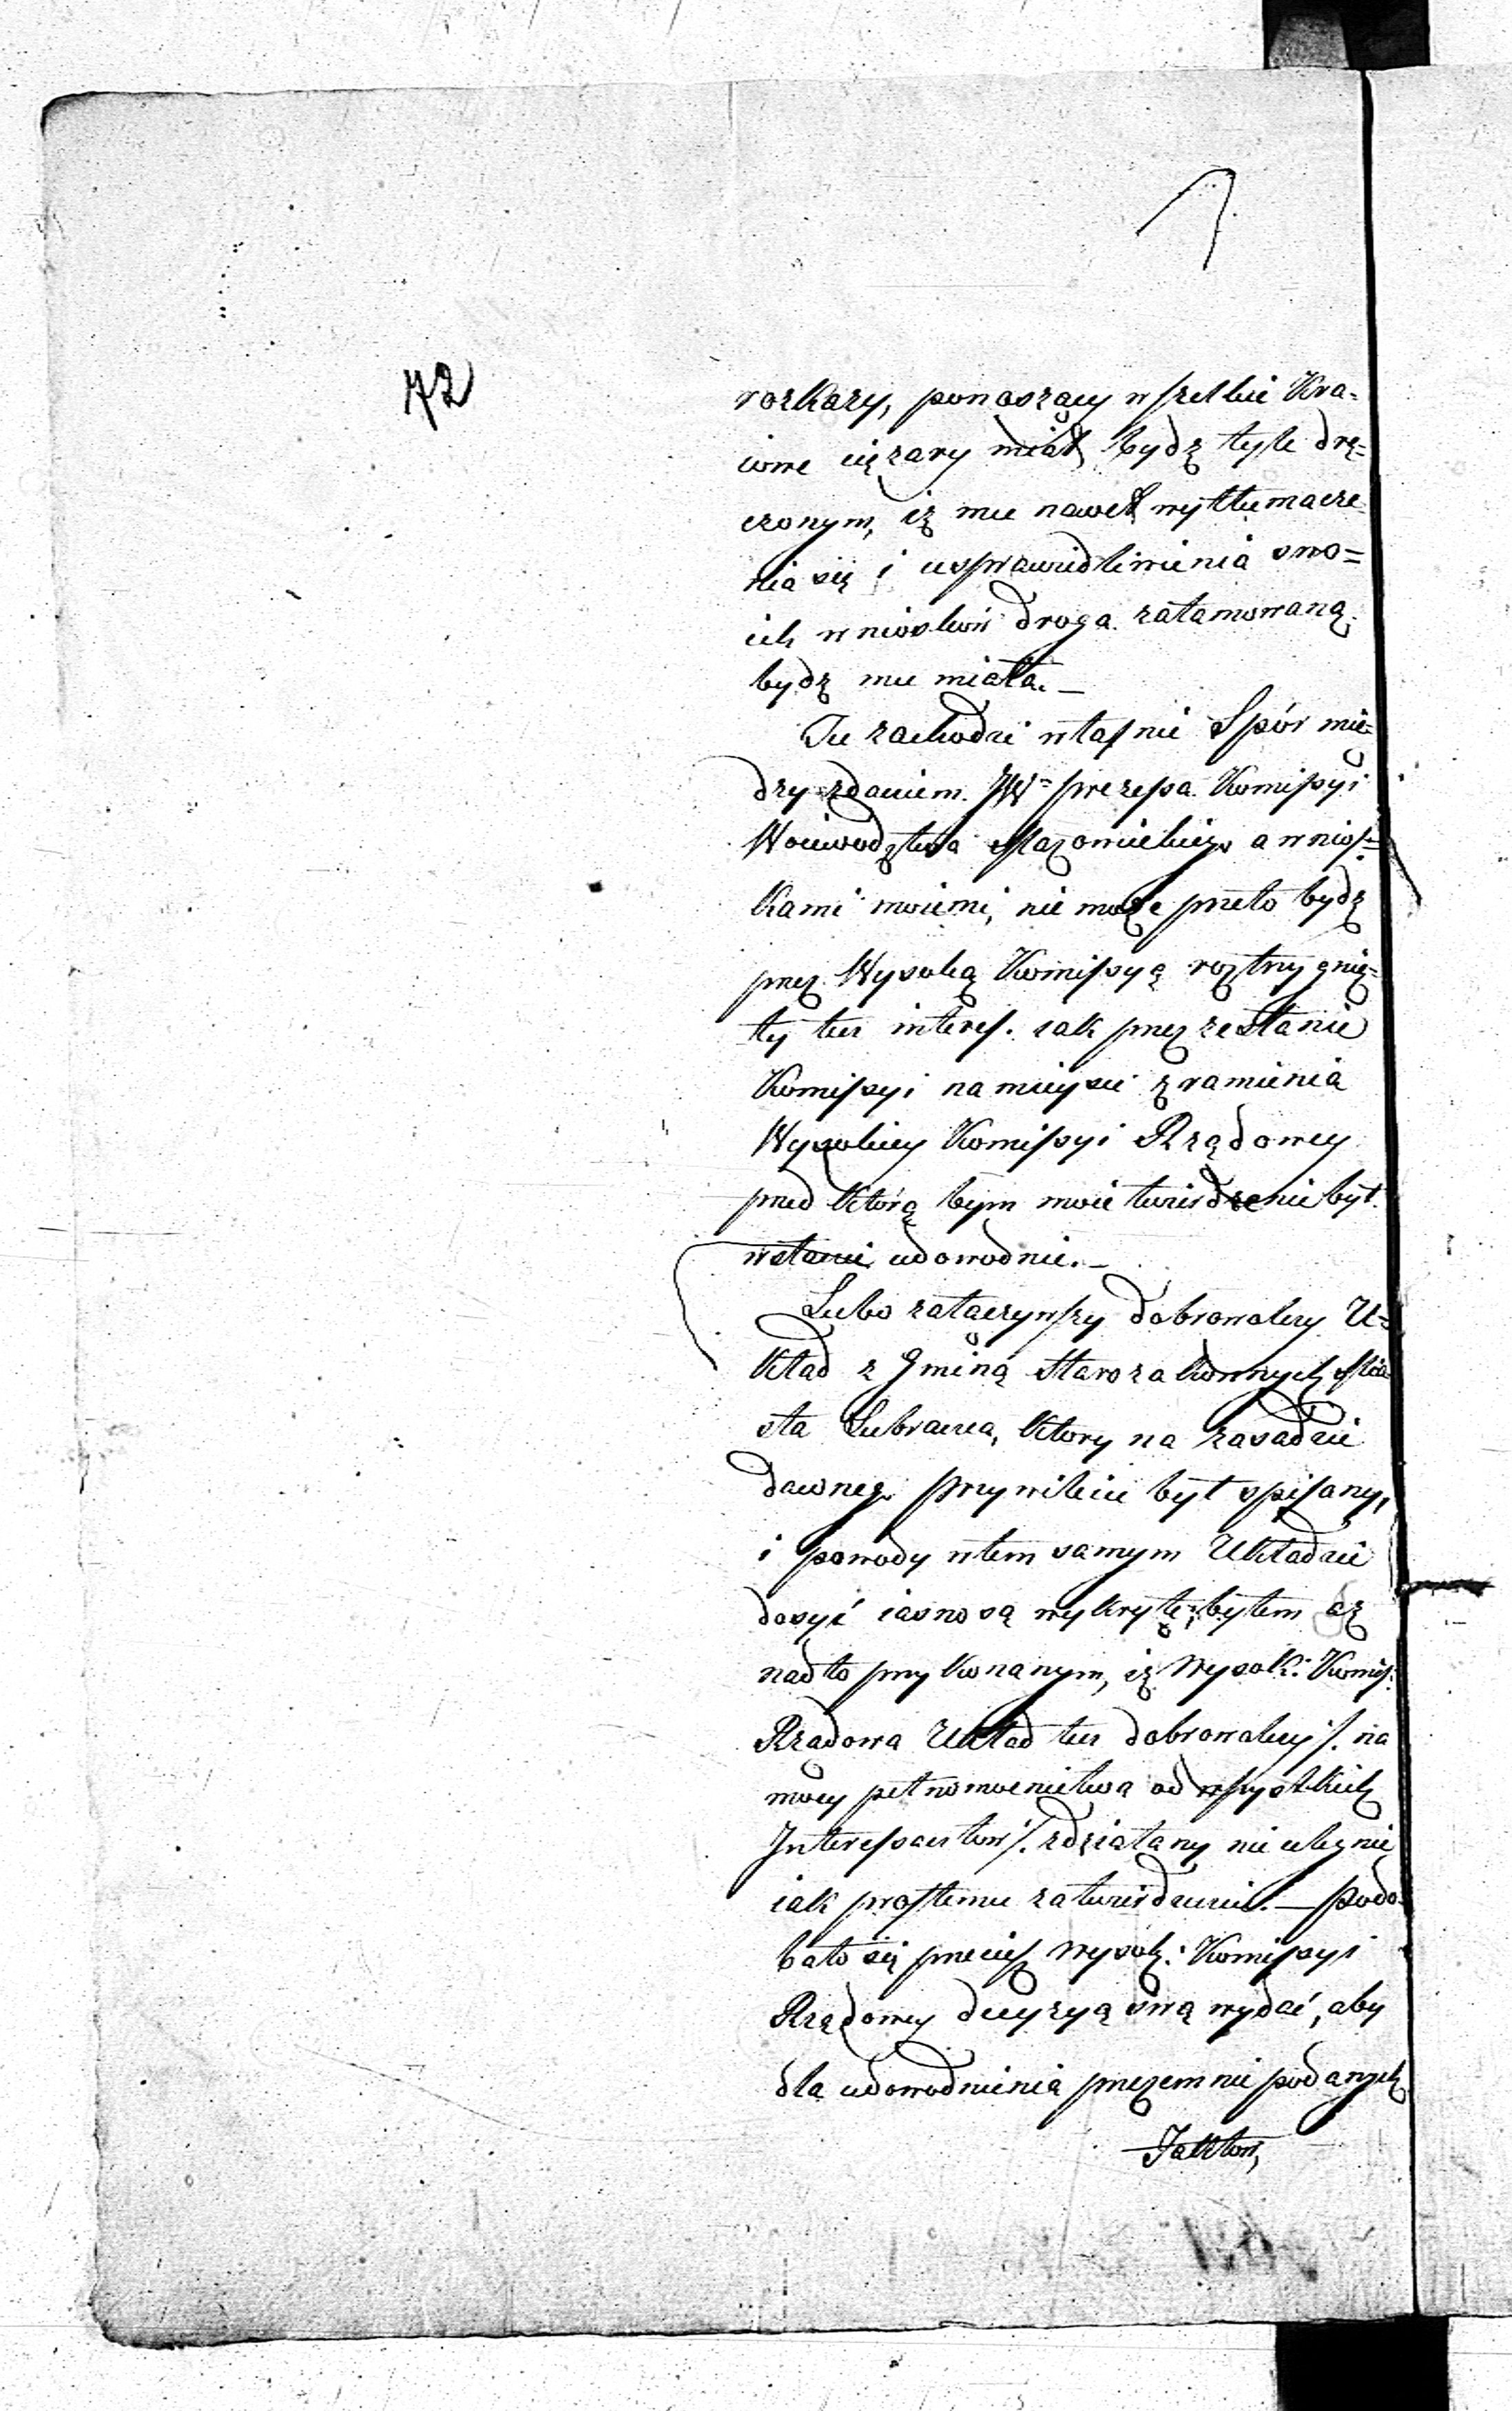 72
rozkazy, ponoszący wszelkie Kra=
iowe ciężary miał bydź tyle drę=
czonym, iż mu nawet wytłumacze
nia się i usprawiedliwienia swo=
ich wniosków droga zatamowaną
bydź mu miała. —
Tu zachodzi własnie Spór mię=
dzy zdaniem JW= prezesa Komissyi
Woiewodztwa Mazowieckiego a wnios=
kami moiemi, nie może przeto bydź
przez Wysoką Komissyą roztrzygnię=
ty ten interes. iak przez zesłanie
Komissyi na mieysce z ramienia
Wysokiey Komissyi Rządowey
przed którą bym moie twierdzenie był
wstanie udowodnić. —
Lubo załączywszy dobrowolny U=
kład z Gminą Starozakonnych Mia=
sta Lubrańca, ktory na zasadzie
dawnego przywileiu był spisany,
i powody wtem samym Układzie
dosyć iasno są wykryte, byłem aż
nadto przykonanym, iż Wysok: Komis:
Rządowa Układ ten dobrowolny /. na
mocy pełnomocnictwa od wszystkich
Interessantów /. zdziałany nie ulegnie
iak prostemu zatwierdzeniu. — Podo=
bało się przecież Wysok: Komissyi
Rządowey decyzyą swą wydać, aby
dla udowodnienia przezemnie podanych
Faktów,